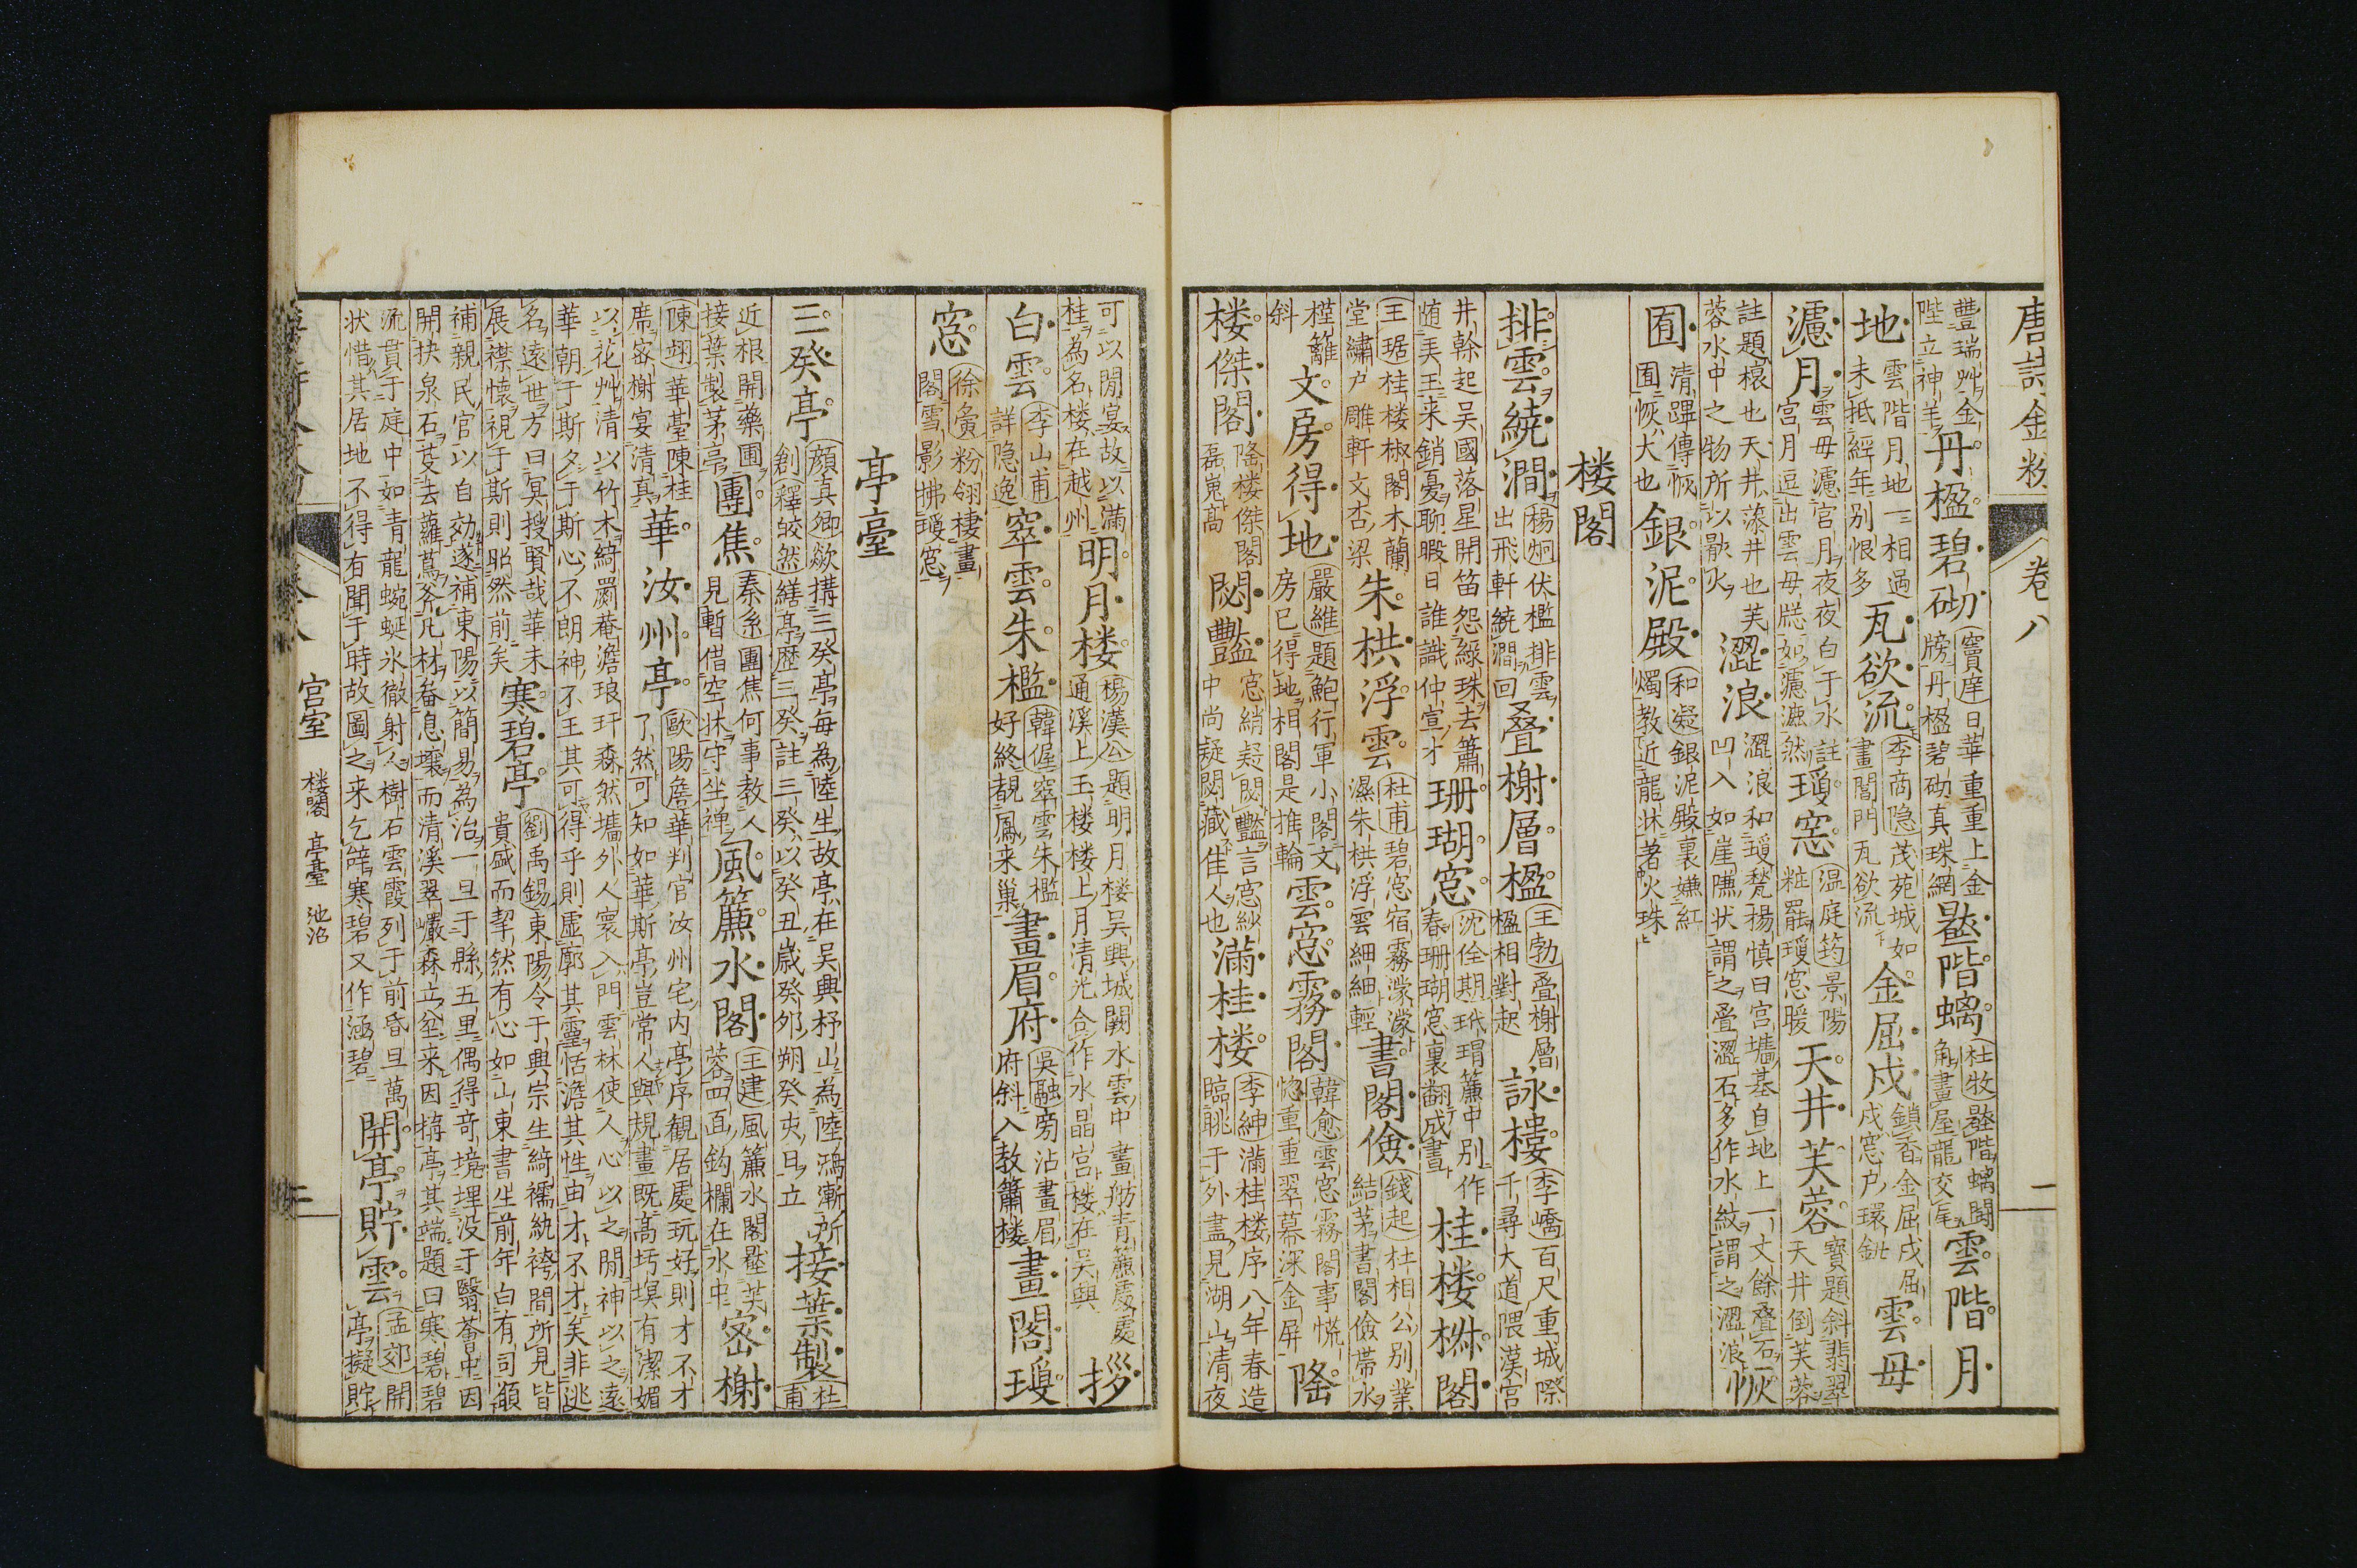 唐詩金粉 卷八 二
豐瑞艸金
陛立神羊
丹楹碧砌
竇庠日華重重上金
牓丹楹碧砌真珠網
階螭
杜牧 階螭鬪
角畫屋龍交尾
雲階月
地
雲階月地一相過
未抵經年別恨多
瓦欲流
李商隐茂苑城如
畫閶門瓦欲流
金屈戌
鎖香金屈戌屈
戌窓户環鈕
雲母
濾月
雲母濾宮月夜夜白于水註
宮月逗出雲母牕如濾漉然
瓊窓
温庭筠景陽
粧罷瓊窓暖
天井芙蓉
寶題斜翡翠
天井倒芙蓉
註題榱也天井藻井也芙
蓉水中之物所以厭火
澀浪
澀浪和瓊甃楊慎曰宮墻基自地上一丈餘叠石
凹入如崖隒状謂之叠澀石多作水紋謂之澀浪
恢
囿
清蹕傳恢
囿恢大也
銀泥殿
和凝銀泥殿裏嫌紅
燭教近龍牀著火珠
楼閣
排雲繞澗
楊炯伏檻排雲
出飛軒繞澗回
叠榭層楹
王勃叠榭層
楹相對起
詠樓
李嶠百尺重城際
千尋大道隈漢宮
井幹起吴國落星開笛怨綠珠去簫
随美玉来銷憂聊暇日誰識仲宣才
珊瑚窓
沈佺期玳瑁簾中別作
春珊瑚窓裏翻成晝
桂楼椒閣
王琚桂楼椒閣木蘭
堂繡户雕軒文杏梁
朱栱浮雲
杜甫碧窓宿霧濛濛
濕朱栱浮雲細細輕
書閣儉
錢起杜相公別業
結茅書閣儉帯水
槿籬
斜
文房得地
嚴維題鮑行軍小閣文
房已得地相閣是推輪
雲窓霧閣
韓愈雲窓霧閣事慌
惚重重翠幕深金屏
隆
楼傑閣
隆楼傑閣
磊嵬高
閟豔
窓綃疑閟豔言窓紗
中尚疑閟藏佳人也
満桂楼
李紳満桂楼序八年春造
臨眺于外盡見湖山清夜
可以閒宴故以満
桂為名楼在越州
明月楼
楊漢公題明月楼吴興城闕水雲中畫舫青簾處處
通溪上玉楼楼上月清光合作水晶宮楼在吴興
拶
白雲
李山甫
詳隐逸
窣雲朱檻
韓偓窣雲朱檻
好終覩鳳来巢
畫眉府
吳融旁沾畫眉
府斜入教簫楼
畫閣瓊
窓
徐彙粉翎棲畫
閣雪影拂瓊窓
亭臺
三癸亭
顔真卿歘搆三癸亭毎為陸生故亭在吴興杼山為陸鴻漸所
創釋皎然繕亭歷三癸註三癸以癸丑歳癸卯朔癸亥日立
接葉製
杜
甫
近根開藥圃
接葉製茅亭
團焦
秦系團焦何事教人
見暫借空牀守坐禅
風簾水閣
王建風簾水閣壓芙
蓉四面鈎欄在水中
密榭
陳翊華臺陳桂
席密榭宴清真
華汝州亭
歐陽詹華判官汝州宅内亭序観居處玩好則才不才
了然可知如華斯亭豈常人與規畫既高圬塓有潔媚
以花艸清以竹木綺罽菴澹琅玕森然墻外人寰入門雲林使人心以之閒神以之遠
華朝于斯夕于斯心不朗神不王其可得乎則虚廓其靈恬澹其性由才不才矣非逃
名遠世方曰冥搜賢哉華未
展襟懐視于斯則昭然前矣
寒碧亭
劉禹錫東陽令于興宗生綺襦紈袴間所見皆
貴盛而挈然有心如山東書生前年白有司願
補親民官以自効遂補東陽以簡易為治一旦于縣五里偶得竒境埋没于翳薈中因
開抉泉石芟去蘿蔦斧凡材畚息壤而清溪翠巗森立坌来因搆亭其端題曰寒碧碧
流貫于庭中如青龍蜿蜒氷徹射人樹石雲霞列于前昏旦萬
状惜其居地不得有聞于時故圖之来乞辞寒碧又作涵碧
開亭貯雲
孟郊開
亭擬貯
宮室 楼閣 亭臺 池沼